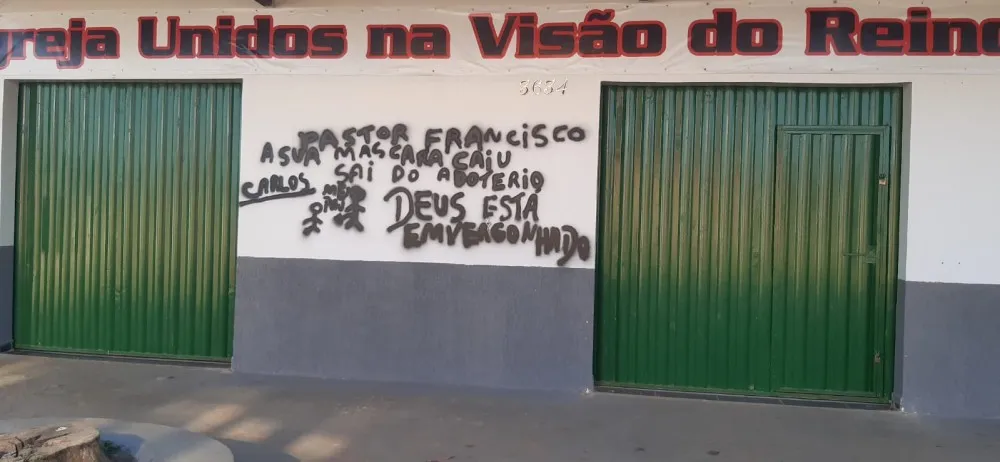 greja Unidos na Visão do Reino
3634
PASTOR FRANCISCO
A SUA MASCARA CAIU
SAI DO ADOTERIO
CARLOS
DEUS ESTÁ
EMVERGONHADO